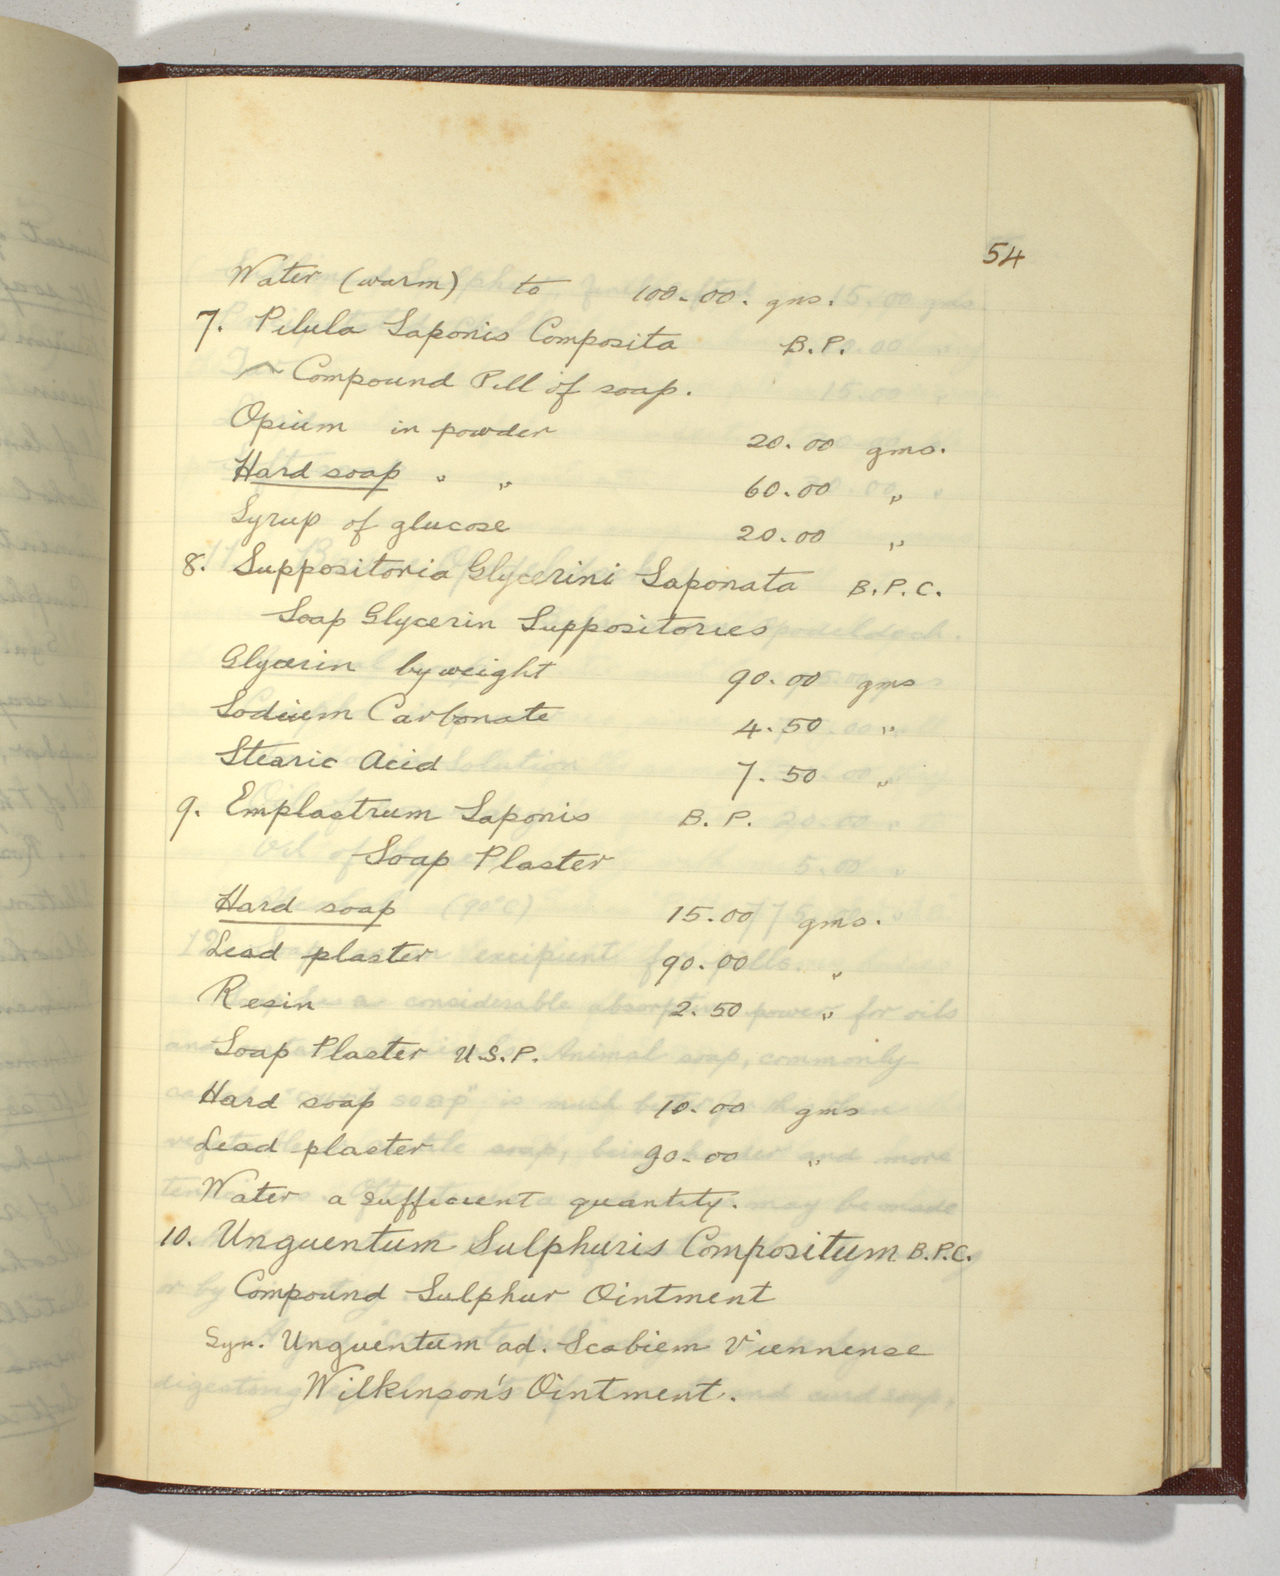 54
Water (warm) to 100.00. gms.
7. Pilula Saponis Composita B.P.
Compound Pill of soap.
Opium in powder 20.00 gms.
Hard soap " " 60.00 "
Syrup of glucose 20.00 "
8. Suppositoria Glycerini Saponata B.P.C.
Soap Glycerin Suppositories
Glycerin by weight 90.00 gms
Sodium Carbonate 4.50 "
Stearic Acid 7.50 "
9. Emplastrum Saponis B.P.
Soap Plaster
Hard soap 15.00 gms.
Lead plaster 90.00 "
Resin 2.50 "
Soap Plaster U.S.P.
Hard soap 10.00 gms
Lead plaster 90.00 "
Water a sufficient quantity.
10. Unguentum Sulphuris Compositum B.P.C.
Compound Sulphur Ointment
Syn. Unguentum ad. Scabiem Viennense
Wilkinson's Ointment.